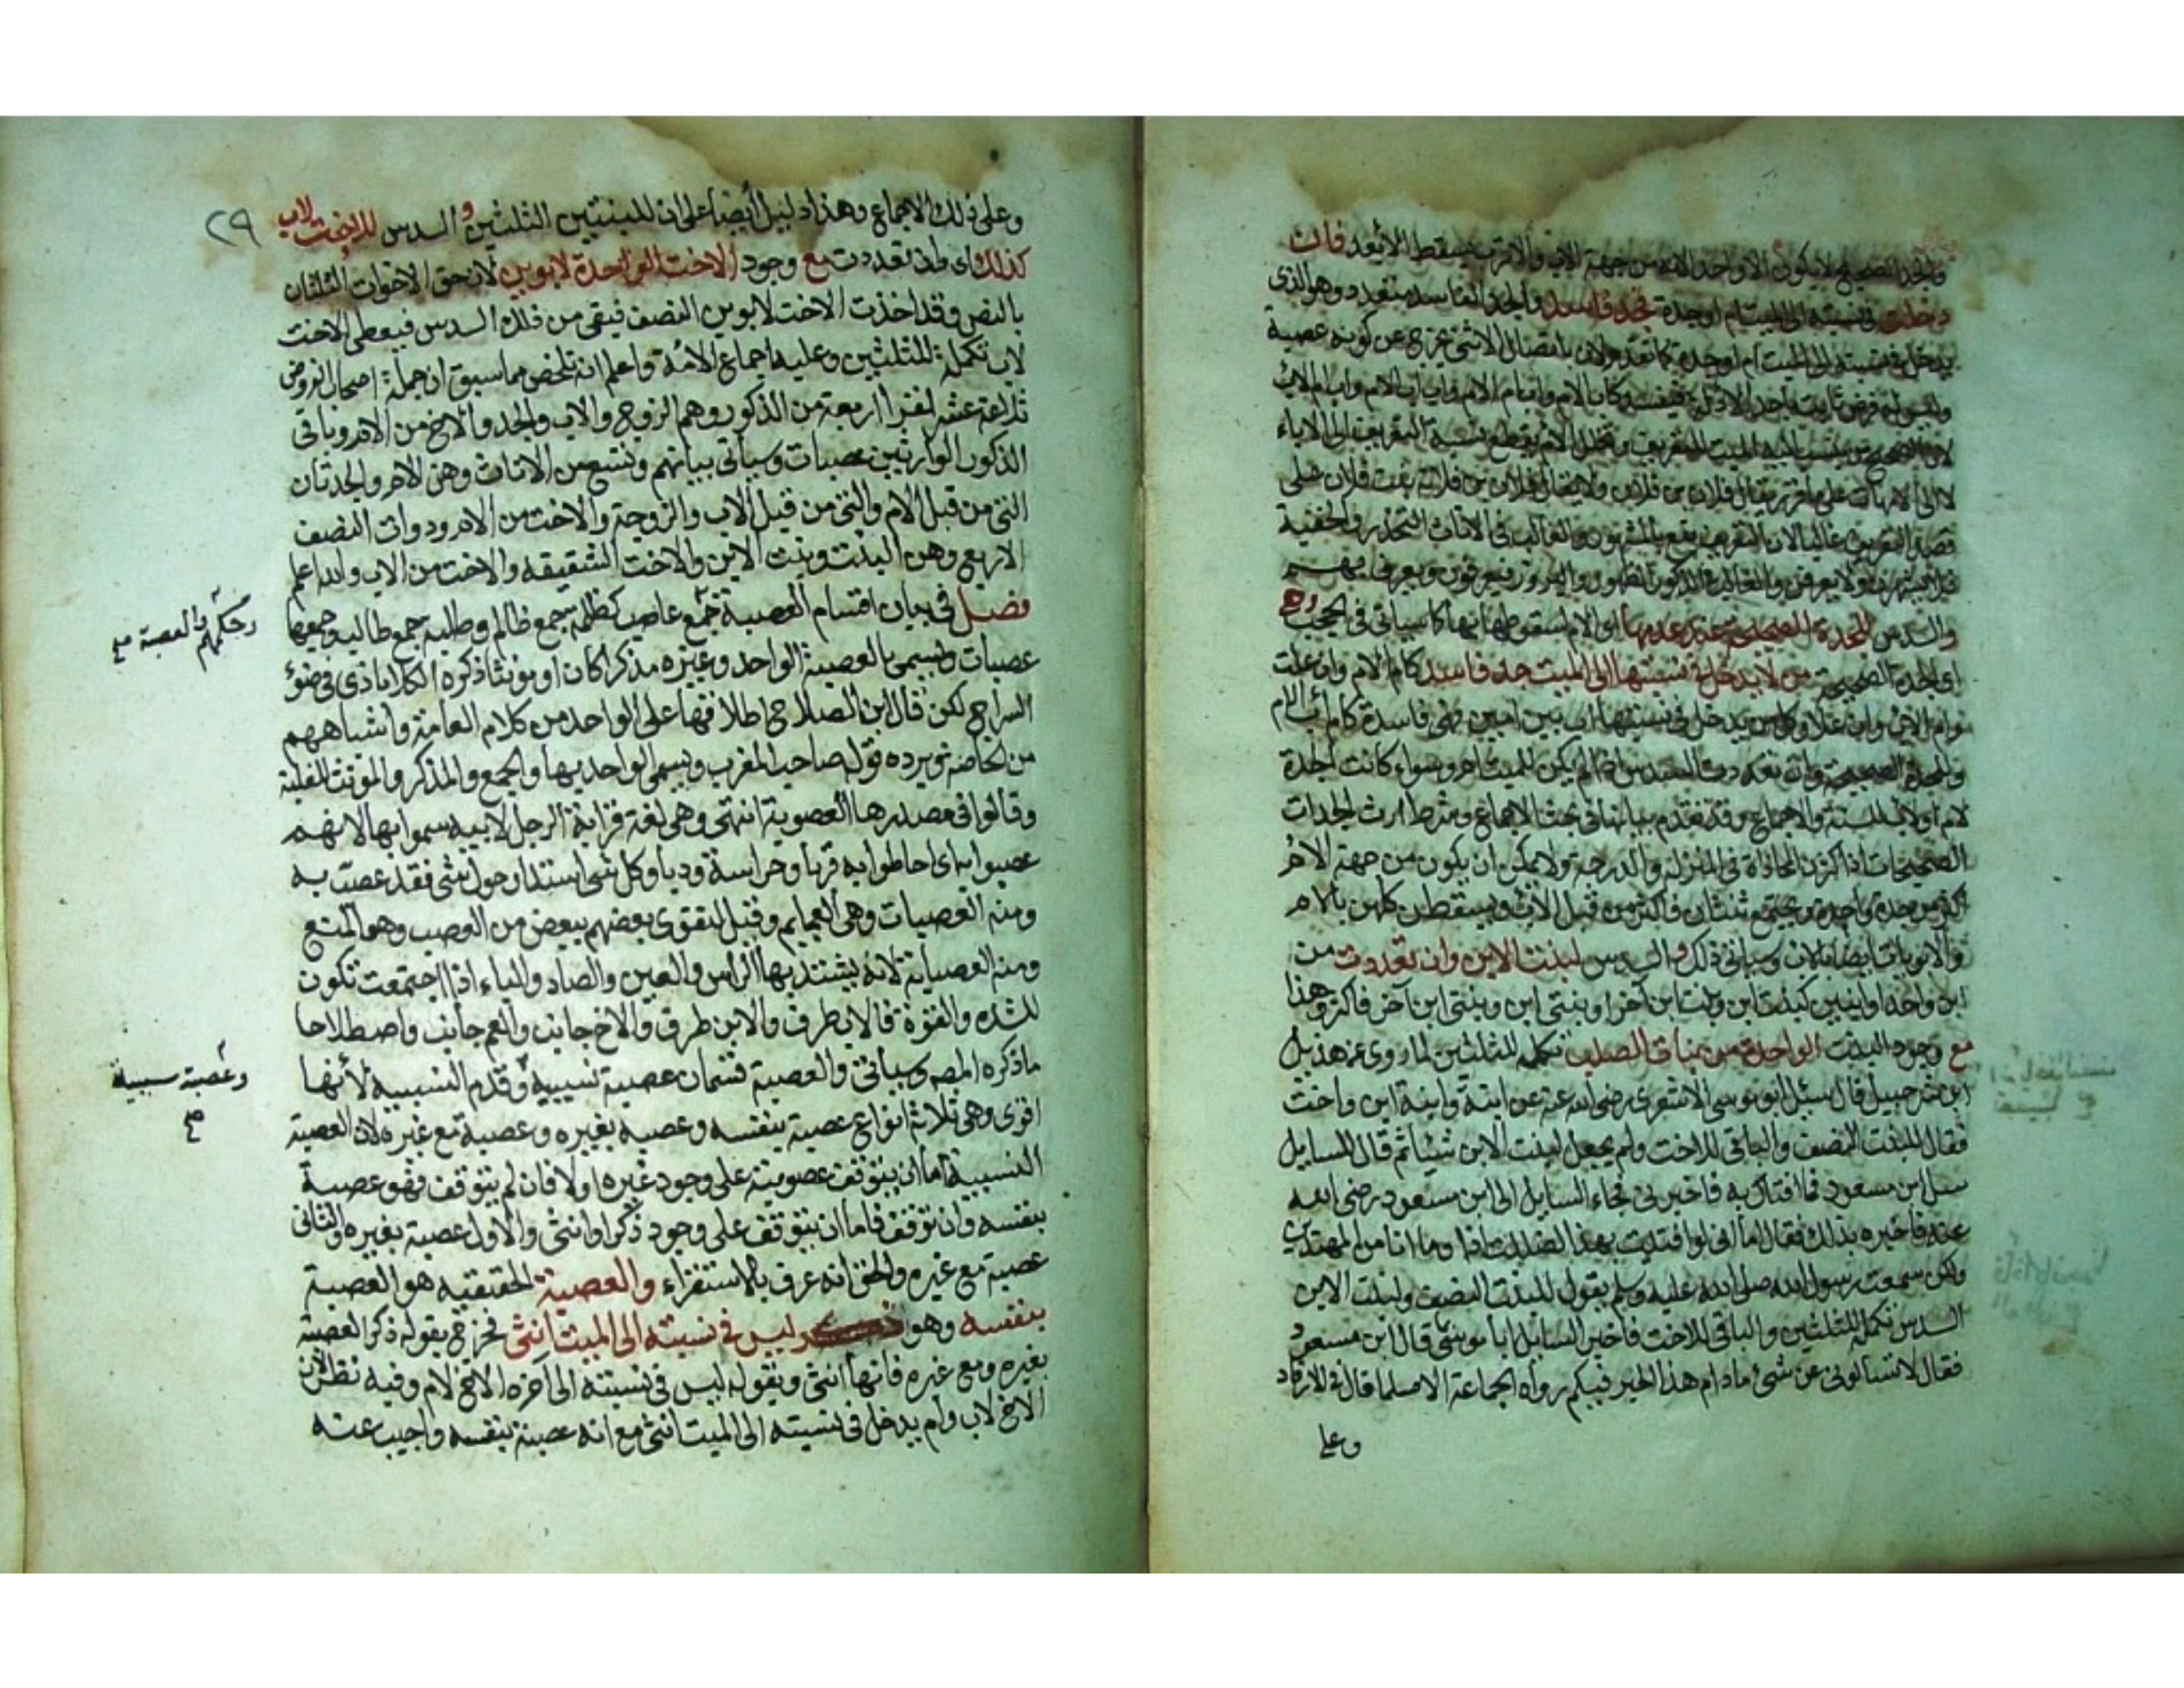 والجد الصحيح لا يكون الا واحدا لانه من جهة الاب والاقرب يسقط الأبعد فان
دخل في نسبته الى الميت ام او جدة فجد فاسد والجد الفاسد متعدد وهو الذى
يدخل في نسبته الى الميت ام او جدة كما تقدم ولان باتصال الانثى يخرج عن كونه عصبة
وليس له فرض كاب الام واب ام الام واب اب الام واب ام الاب
لان الصحيح من ينسب اليه الميت للتعريف وتخلل الام يقطع نسبة التعريف الى الاباء
لا الى الامهات يقال فلان بن فلان ولا يقال فلان بن فلانة بنت فلان
غالبا لان التعريف يقع بالمشهور والغالب في الاناث التخدر والخفية
والغالب في الذكور الظهور والبروز فيعرفون ويعرف بهم
والسدس للجدة الصحيحة عند عدمها اى الام لسقوطها بها كما سياتى في الحجب وهى
اى الجدة الصحيحة من لا يدخل في نسبتها الى الميت جد فاسد كام الام وان علت
وام الاب وان علا وكل من يدخل في نسبتها اب بين امين فهى فاسدة كام اب الام
وللجدة الصحيحة وان تعددت السدس اذا لم يكن للميت ام وسواء كانت الجدة
لام او لاب للسنة والاجماع وقد تقدم بيانها في بحث الاجماع وشرط ارث الجدات
الصحيحات اذا كثرن المحاذاة في المنزلة والدرجة ولا يمكن ان يكون من جهة الام
اكثر من جدة واحدة ويجتمع ثنتان فاكثر من قبل الاب ويسقطن كلهن بالام
والابويات ايضا بالاب وسياتى ذلك والسدس لبنت الابن وان تعددت من
ابن واحد او ابنين كبنت ابن وبنت ابن آخر او بنتى ابن وبنتى ابن آخر فاكثر وهذا
مع وجود البنت الواحدة من بنات الصلب تكملة للثلثين لما روى عن هذيل
ابن شرحبيل قال سئل ابو موسى الاشعرى رضى الله عنه عن ابنة وابنة ابن واخت
فقال للبنت النصف والباقى للاخت ولم يجعل لبنت الابن شيئا ثم قال للسايل
سل ابن مسعود فما افتاك به فاخبرنى فجاء السايل الى ابن مسعود رضى الله
عنه فاخبره بذلك فقال اما انى لو افتيت بهذا لضللت اذا وما انا من المهتدين
ولكن سمعت رسول الله صلى الله عليه وسلم يقول للبنت النصف ولبنت الابن
السدس تكملة للثلثين والباقى للاخت فاخبر السايل ابا موسى قال ابن مسعود
فقال لا تسألونى عن شئ ما دام هذا الحبر فيكم رواه الجماعة الا مسلما قال في الارفاد
وعلى
٢٩
وعلى ذلك الاجماع وهذا دليل أيضا على ان للبنتين الثلثين والسدس للاخت لاب
كذلك اى وان تعددت مع وجود الاخت الواحدة لابوين لان حق الاخوات الثلثان
بالنص وقد اخذت الاخت لابوين النصف فبقى من ذلك السدس فيعطى الاخت
لاب تكملة للثلثين وعليه اجماع الأمة واعلم انه تلخص مما سبق ان جملة اصحاب الفروض
ثلاثة عشر نفرا اربعة من الذكور وهم الزوج والاب والجد والاخ من الام وباقى
الذكور الوارثين عصبات وسيأتى بيانهم وتسع من الاناث وهن الام والجدتان
التى من قبل الام والتى من قبل الاب والزوجة والاخت من الام وذوات النصف
الاربع وهن البنت وبنت الابن والاخت الشقيقه والاخت من الاب والله اعلم
فصل في بيان اقسام العصبة جمع عاصب كظلمة جمع ظالم وطلبه جمع طالب وجمعها
وحكمهم والعصبة صح
عصبات ويسمى بالعصبة الواحد وغيره مذكرا كان او مؤنثا ذكره الكلاباذى في ضوء
السراج لكن قال ابن الصلاح اطلاقها على الواحد من كلام العامة واشباههم
من الخاصة ويرده قول صاحب المغرب ويسمى الواحد بها والجمع والمذكر والمؤنث للغلبة
وقالوا فى مصدرها العصوبة انتهى وهى لغة قرابة الرجل لابيه سموا بها لانهم
عصبوا به اى احاطوا به قربا وحراسة وذبا وكل شئ استدار حول شئ فقد عصب به
ومنه العصبات وهى العمايم وقيل لتقوى بعضهم ببعض من العصب وهو المنع
ومنه العصابة لانه يشتد بها الراس والعين والصاد والباء اذا اجتمعت تكون
للشده والقوة فالاب طرف والابن طرف والاخ جانب والعم جانب واصطلاحا
ماذكره المصه وسياتى والعصبة قسمان عصبة نسبية وقدم النسبية لأنها
وعصبة سببية
صح
اقوى وهى ثلاثة انواع عصبة بنفسه وعصبه بغيره وعصبة مع غيره لان العصبة
النسبية اما ان يتوقف عصوبته على وجود غيره اولا فان لم يتوقف فهو عصبة
بنفسه وان توقف فاما ان يتوقف على وجود ذكر او انثى والاول عصبة بغيره والثانى
عصبة مع غيره والحق انه عرف بالاستقراء والعصبة الحقيقيه هو العصبة
بنفسه وهو ذكر ليس في نسبته الى الميت انثى فخرج بقوله ذكر العصبة
بغيره ومع غيره فانها انثى وبقوله ليس في نسبته الى آخره الاخ لام وفيه نظر لان
الاخ لاب وام يدخل في نسبته الى الميت انثى مع انه عصبة بنفسه واجيب عنه